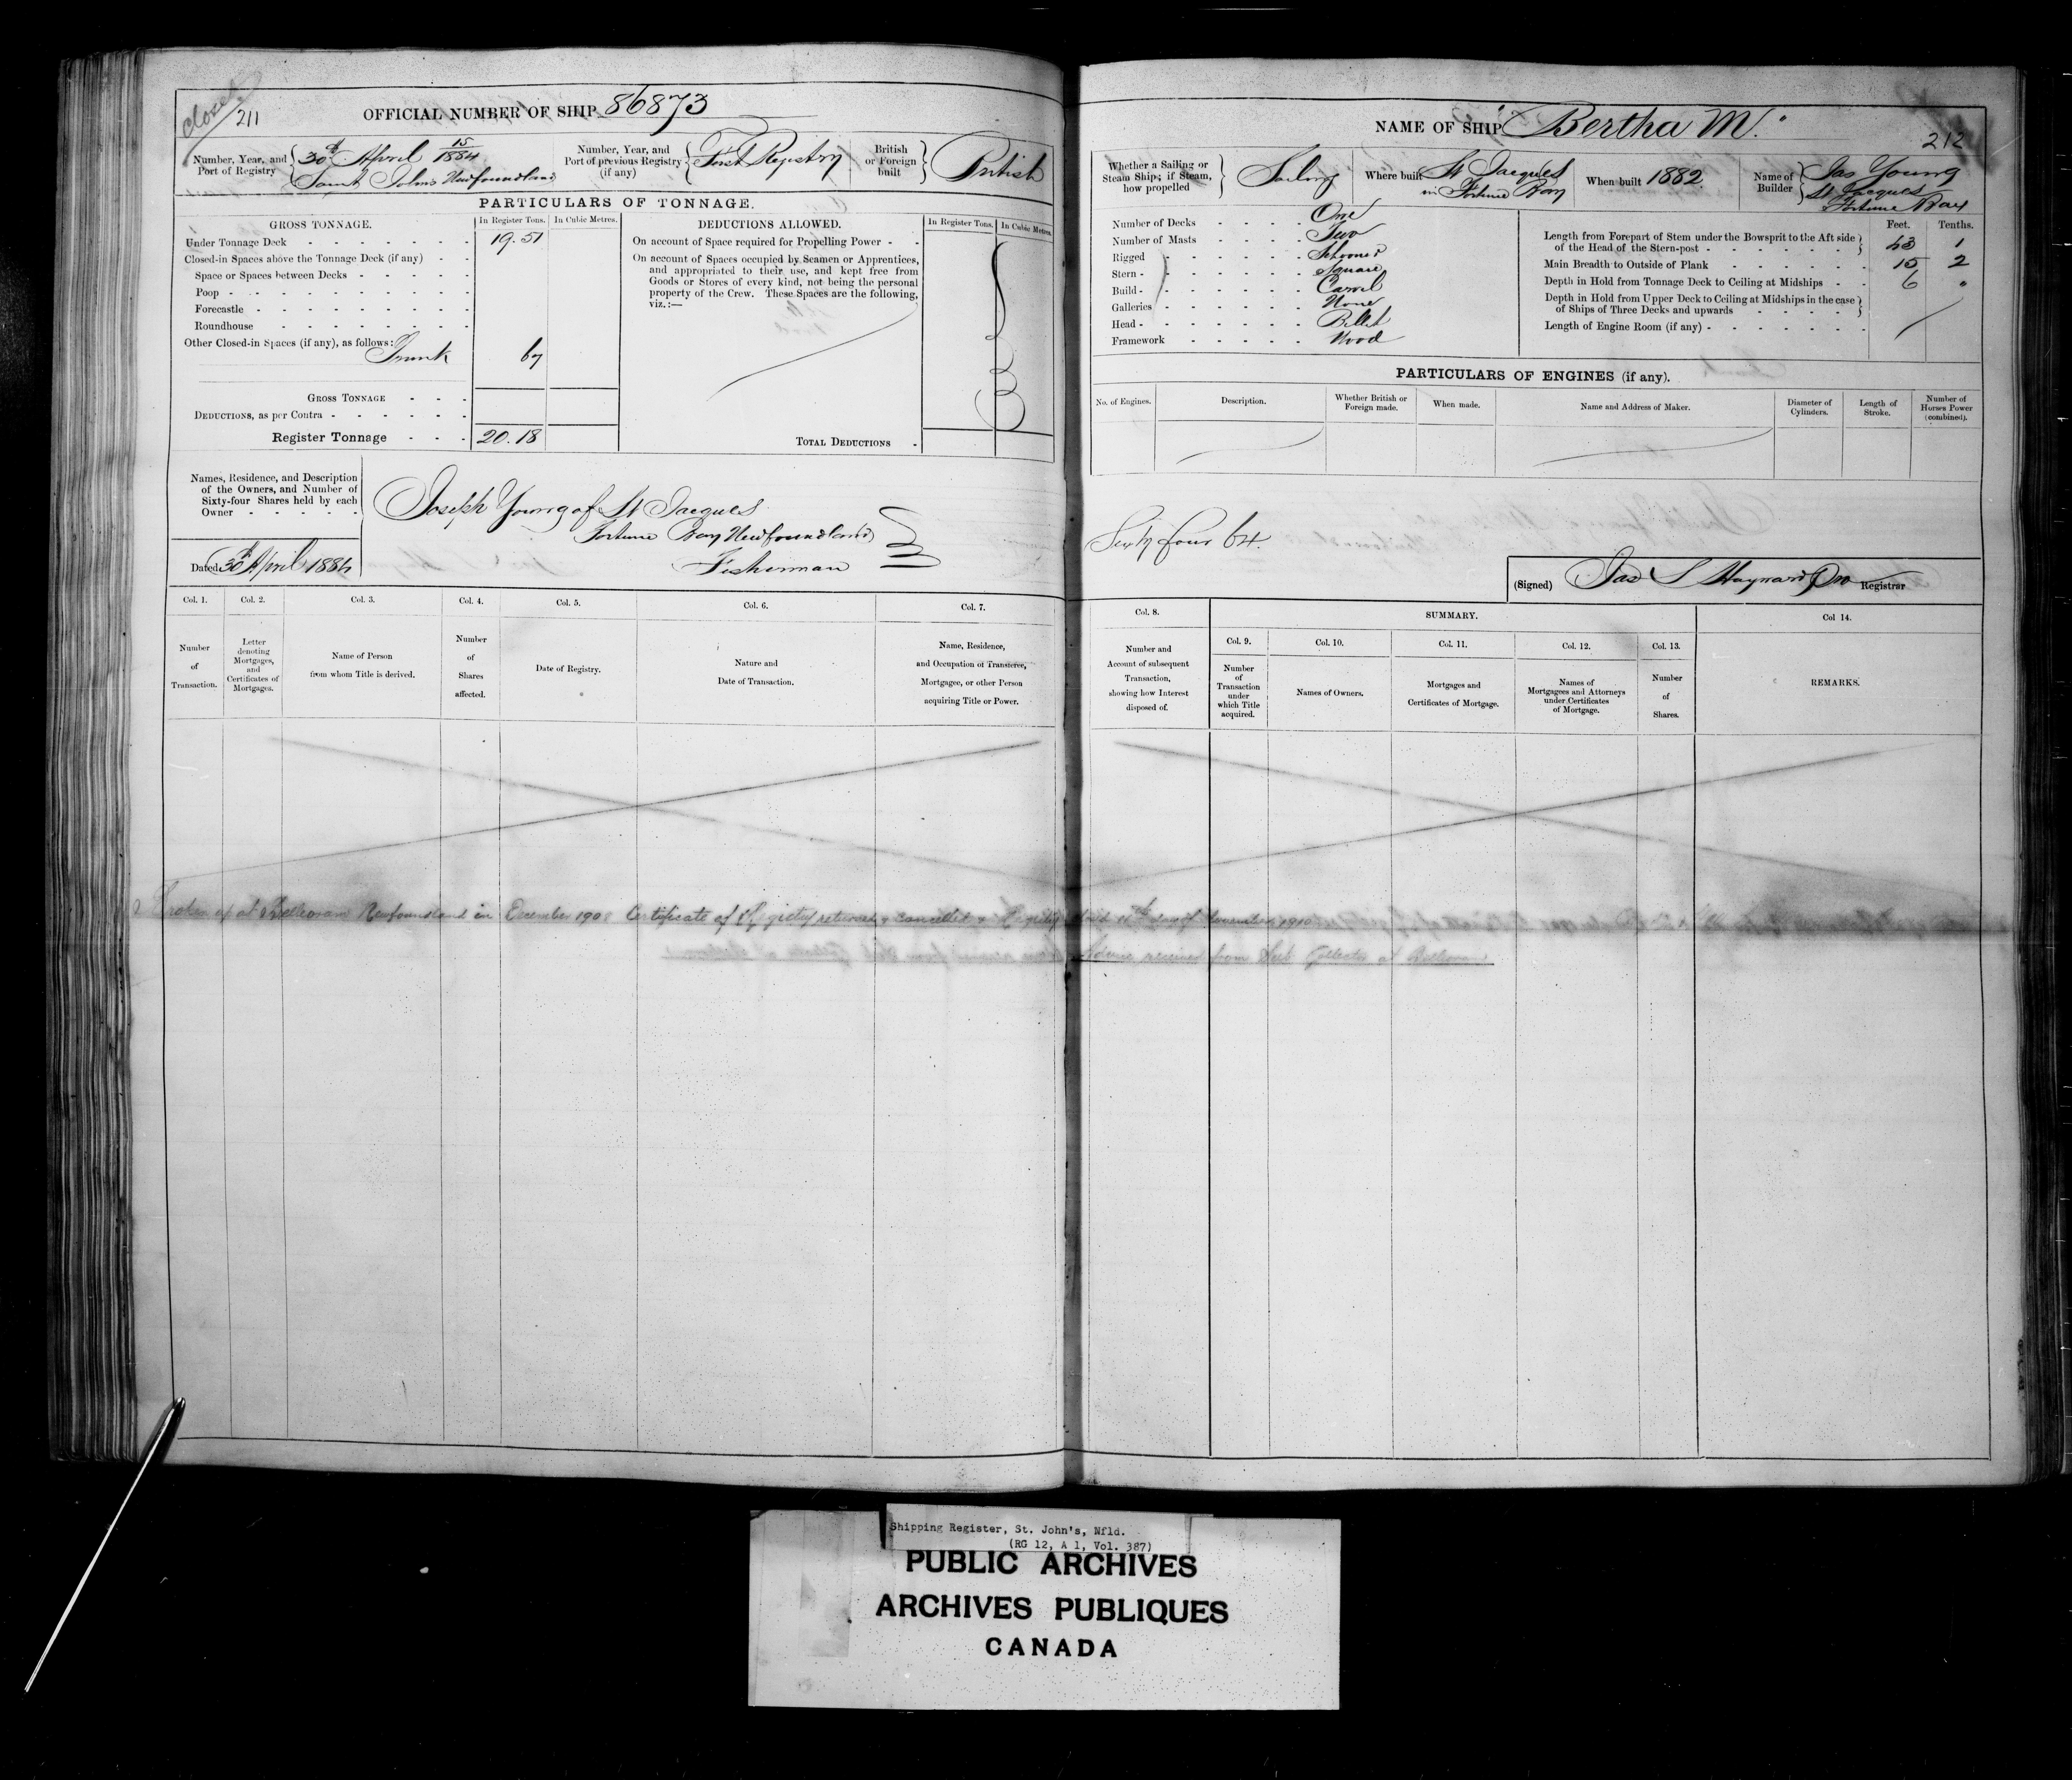 closed
211
OFFICIAL NUMBER OF SHIP 86873
Number, Year, and Port of Registry 30th April 15/1884
Saint John's Newfoundland
Number, Year, and Port of previous Registry (if any) First Registry
British or Foreign built British
PARTICULARS OF TONNAGE.
GROSS TONNAGE.
In Register Tons. In Cubic Metres.
Under Tonnage Deck 19.51
Closed-in Spaces above the Tonnage Deck (if any)
Space or Spaces between Decks
Poop
Forecastle
Roundhouse
Other Closed-in Spaces (if any), as follows:
Trunk 67
GROSS TONNAGE
DEDUCTIONS, as per Contra
Register Tonnage 20.18
DEDUCTIONS ALLOWED.
In Register Tons. In Cubic Metres.
On account of Space required for Propelling Power
On account of Spaces occupied by Seamen or Apprentices,
and appropriated to their use, and kept free from
Goods or Stores of every kind, not being the personal
property of the Crew. These Spaces are the following,
viz.:—
TOTAL DEDUCTIONS
Names, Residence, and Description
of the Owners, and Number of
Sixty-four Shares held by each
Owner
Joseph Young of St Jacques
Fortune Bay Newfoundland
Fisherman
Dated 30th April 1884
Col. 1. Col. 2. Col. 3. Col. 4. Col. 5. Col. 6. Col. 7.
Number of Transaction.
Letter denoting Mortgages, and Certificates of Mortgages.
Name of Person from whom Title is derived.
Number of Shares affected.
Date of Registry.
Nature and Date of Transaction.
Name, Residence, and Occupation of Transferee, Mortgagee, or other Person acquiring Title or Power.
NAME OF SHIP "Bertha M."
212
Whether a Sailing or Steam Ship; if Steam, how propelled Sailing
Where built St Jacques
in Fortune Bay
When built 1882.
Name of Builder Jas Young
St Jacques
Fortune Bay
Number of Decks One
Number of Masts Two
Rigged Schooner
Stern Square
Build Carvel
Galleries None
Head Billet
Framework Wood
Feet. Tenths.
Length from Forepart of Stem under the Bowsprit to the Aft side
of the Head of the Stern-post 43 1
Main Breadth to Outside of Plank 15 2
Depth in Hold from Tonnage Deck to Ceiling at Midships 6 "
Depth in Hold from Upper Deck to Ceiling at Midships in the case
of Ships of Three Decks and upwards
Length of Engine Room (if any)
PARTICULARS OF ENGINES (if any).
No. of Engines.
Description.
Whether British or Foreign made.
When made.
Name and Address of Maker.
Diameter of Cylinders.
Length of Stroke.
Number of Horses Power (combined).
Sixty four 64.
(Signed) Jas S Hayward Registrar
Col. 8. SUMMARY. Col 14.
Col. 9. Col. 10. Col. 11. Col. 12. Col. 13.
Number and Account of subsequent Transaction, showing how Interest disposed of.
Number of Transaction under which Title acquired.
Names of Owners.
Mortgages and Certificates of Mortgage.
Names of Mortgagees and Attorneys under Certificates of Mortgage.
Number of Shares.
REMARKS.
Broken up at Belleoram Newfoundland in December 1908 Certificate of Registry returned & cancelled & Registry closed day of November 1910
Advice received from Sub Collector at Belleoram
Shipping Register, St. John's, Nfld.
(RG 12, A 1, Vol. 387)
PUBLIC ARCHIVES
ARCHIVES PUBLIQUES
CANADA